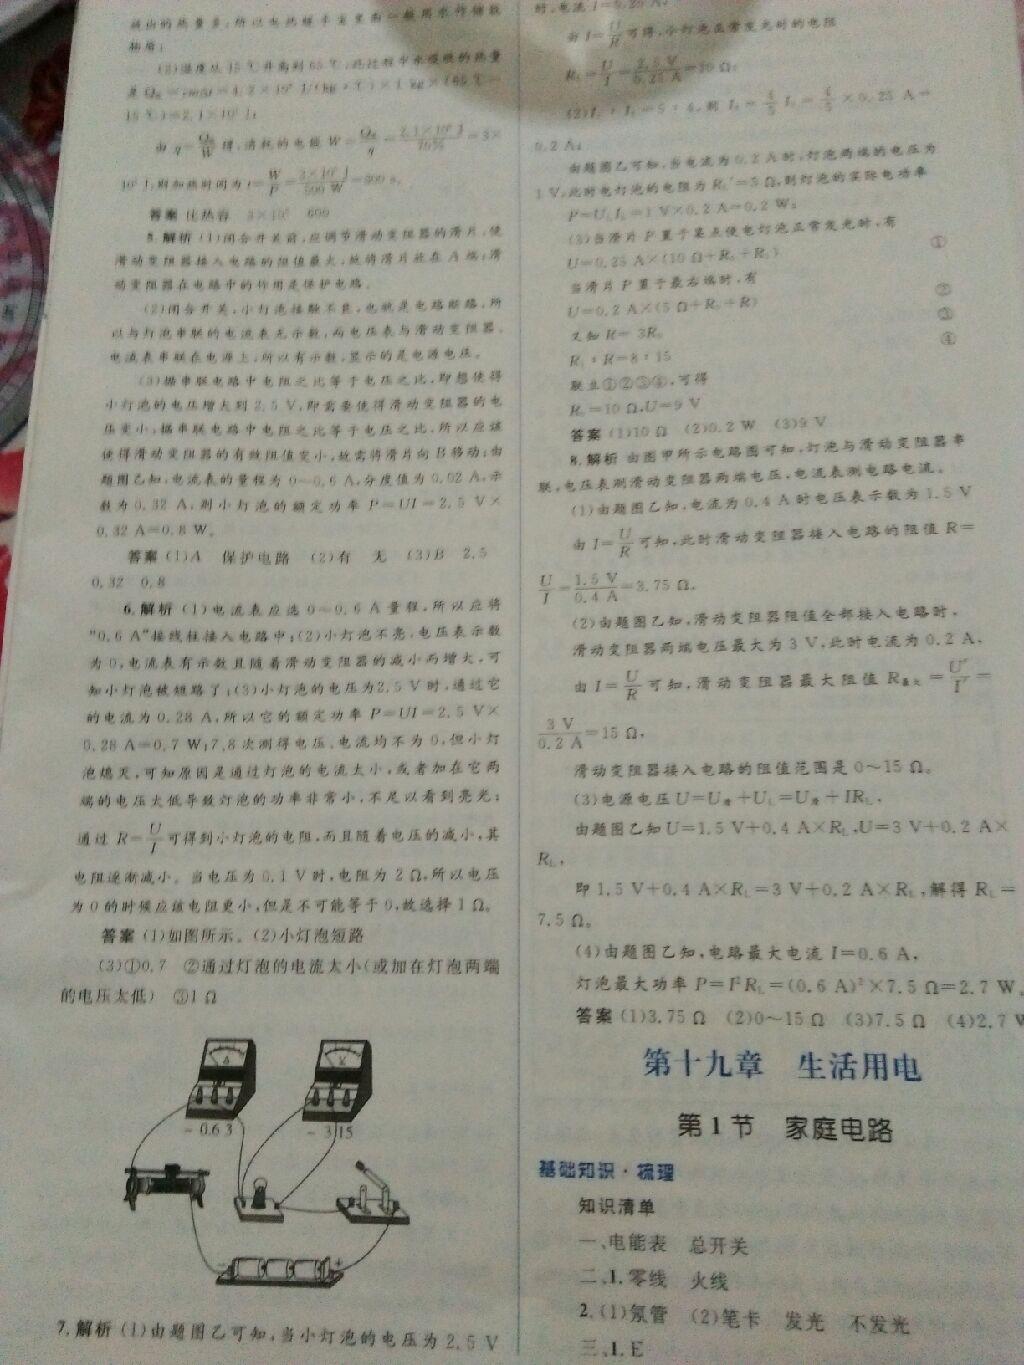 (2)温度从15 ℃升高到65 ℃,此过程中水吸收的热量
是 Q吸=cmΔt=4.2×10³ J/(kg·℃)×1 kg×(65 ℃-
15 ℃)=2.1×10⁵ J;
由 η=Q吸/W 得,消耗的电能 W=Q吸/η=2.1×10⁵ J/70%=3×
10⁵ J,则加热时间为 t=W/P=3×10⁵ J/500 W=600 s。
答案 比热容 3×10⁵ 600
5.解析 (1)闭合开关前,应调节滑动变阻器的滑片,使
滑动变阻器接入电路的阻值最大,故将滑片放在 A 端;滑
动变阻器在电路中的作用是保护电路。
(2)闭合开关,小灯泡接触不良,也就是电路断路,所
以与灯泡串联的电流表无示数,而电压表与滑动变阻器、
电流表串联在电源上,所以有示数,显示的是电源电压。
(3)据串联电路中电阻之比等于电压之比,即想使得
小灯泡的电压增大到2.5 V,即需要使得滑动变阻器的电
压变小;据串联电路中电阻之比等于电压之比,所以应该
使得滑动变阻器的有效阻值变小,故需将滑片向B移动;由
题图乙知,电流表的量程为0~0.6 A,分度值为0.02 A,示
数为0.32 A,则小灯泡的额定功率 P=UI=2.5 V×
0.32 A=0.8 W。
答案 (1)A 保护电路 (2)有 无 (3)B 2.5
0.32 0.8
6.解析 (1)电流表应选0~0.6 A量程,所以应将
“0.6 A”接线柱接入电路中;(2)小灯泡不亮,电压表示数
为0,电流表有示数且随着滑动变阻器的减小而增大,可
知小灯泡被短路了;(3)小灯泡的电压为2.5 V时,通过它
的电流为0.28 A,所以它的额定功率 P=UI=2.5 V×
0.28 A=0.7 W;7、8次测得电压、电流均不为0,但小灯
泡熄灭,可知原因是通过灯泡的电流太小,或者加在它两
端的电压太低导致灯泡的功率非常小,不足以看到亮光;
通过 R=U/I 可得到小灯泡的电阻,而且随着电压的减小,其
电阻逐渐减小。当电压为0.1 V时,电阻为2 Ω,所以电压
为0的时候应该电阻更小,但是不可能等于0,故选择1 Ω。
答案 (1)如图所示。(2)小灯泡短路
(3)①0.7 ②通过灯泡的电流太小(或加在灯泡两端
的电压太低) ③1 Ω
A
V
- 0.6 3
- 3 15
- +
7.解析 (1)由题图乙可知,当小灯泡的电压为2.5 V
时,电流 I=0.25 A,
由 I=U/R 可得,小灯泡正常发光时的电阻
RL=U/I=2.5 V/0.25 A=10 Ω;
(2)I₁∶I₂=5∶4,则 I₂=4/5 I₁=4/5×0.25 A=
0.2 A;
由题图乙可知,当电流为0.2 A时,灯泡两端的电压为
1 V,此时电灯泡的电阻为RL′=5 Ω,则灯泡的实际电功率
P=ULIL=1 V×0.2 A=0.2 W;
(3)当滑片 P 置于某点使电灯泡正常发光时,有
U=0.25 A×(10 Ω+R₀+R₁) ①
当滑片 P 置于最右端时,有
U=0.2 A×(5 Ω+R₀+R) ②
又知 R=3R₀ ③
R₁∶R=8∶15 ④
联立①②③④,可得
R₀=10 Ω,U=9 V
答案 (1)10 Ω (2)0.2 W (3)9 V
8.解析 由图甲所示电路图可知,灯泡与滑动变阻器串
联,电压表测滑动变阻器两端电压,电流表测电路电流。
(1)由题图乙知,电流为0.4 A时电压表示数为1.5 V
由 I=U/R 可知,此时滑动变阻器接入电路的阻值 R=
U/I=1.5 V/0.4 A=3.75 Ω,
(2)由题图乙知,滑动变阻器阻值全部接入电路时,
滑动变阻器两端电压最大为3 V,此时电流为0.2 A,
由 I=U/R 可知,滑动变阻器最大阻值 R最大=U′/I′=
3 V/0.2 A=15 Ω,
滑动变阻器接入电路的阻值范围是0~15 Ω。
(3)电源电压U=U滑+UL=U滑+IRL,
由题图乙知U=1.5 V+0.4 A×RL,U=3 V+0.2 A×
RL,
即1.5 V+0.4 A×RL=3 V+0.2 A×RL,解得 RL=
7.5 Ω。
(4)由题图乙知,电路最大电流 I=0.6 A,
灯泡最大功率 P=I²RL=(0.6 A)²×7.5 Ω=2.7 W。
答案 (1)3.75 Ω (2)0~15 Ω (3)7.5 Ω (4)2.7 W
第十九章 生活用电
第1节 家庭电路
基础知识·梳理
知识清单
一、电能表 总开关
二、1.零线 火线
2.(1)氖管 (2)笔卡 发光 不发光
三、1.E